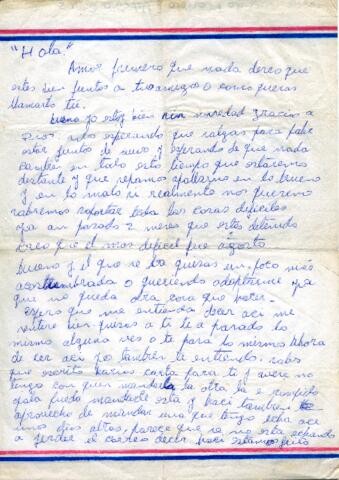 "Hola"
Amor primero que nada deseo que
estes bien junto a tu amigo o como quieras
llamarlo tu.
bueno yo estoy bien sin novedad gracias a
Dios. solo esperando que salgas para poder
estar juntos de nuevo y esperando de que nada
cambie en todo este tiempo que estaremos
distante y que sepamos apollarno en lo bueno
y en lo malo si realmente nos queremo
sabremos soportar toda las cosas dificiles
ya an pasado 2 meses que estes detenido
creo que el mas dificil fue agosto
bueno y el que se ba quisas un poco más
acostumbrada o queriendo adaptarme ya
que no queda otra cosa que hacer.
espero que me entienda decir aci me
sentire bien. quisas a ti te a pasado lo
mismo alguna ves o te pasa lo mismo ahora
de ser aci yo tambien te entiendo. sabes
que escrito varias carta para ti y avere no
tengo con quien mandarla la otra la e rompido
para puedo mandarte esta y haci tambien
aprovecho de mandar una que tengo echa ace
unos dias altos, parece que se me esta echando
a perder el correo decir haci estamos frito